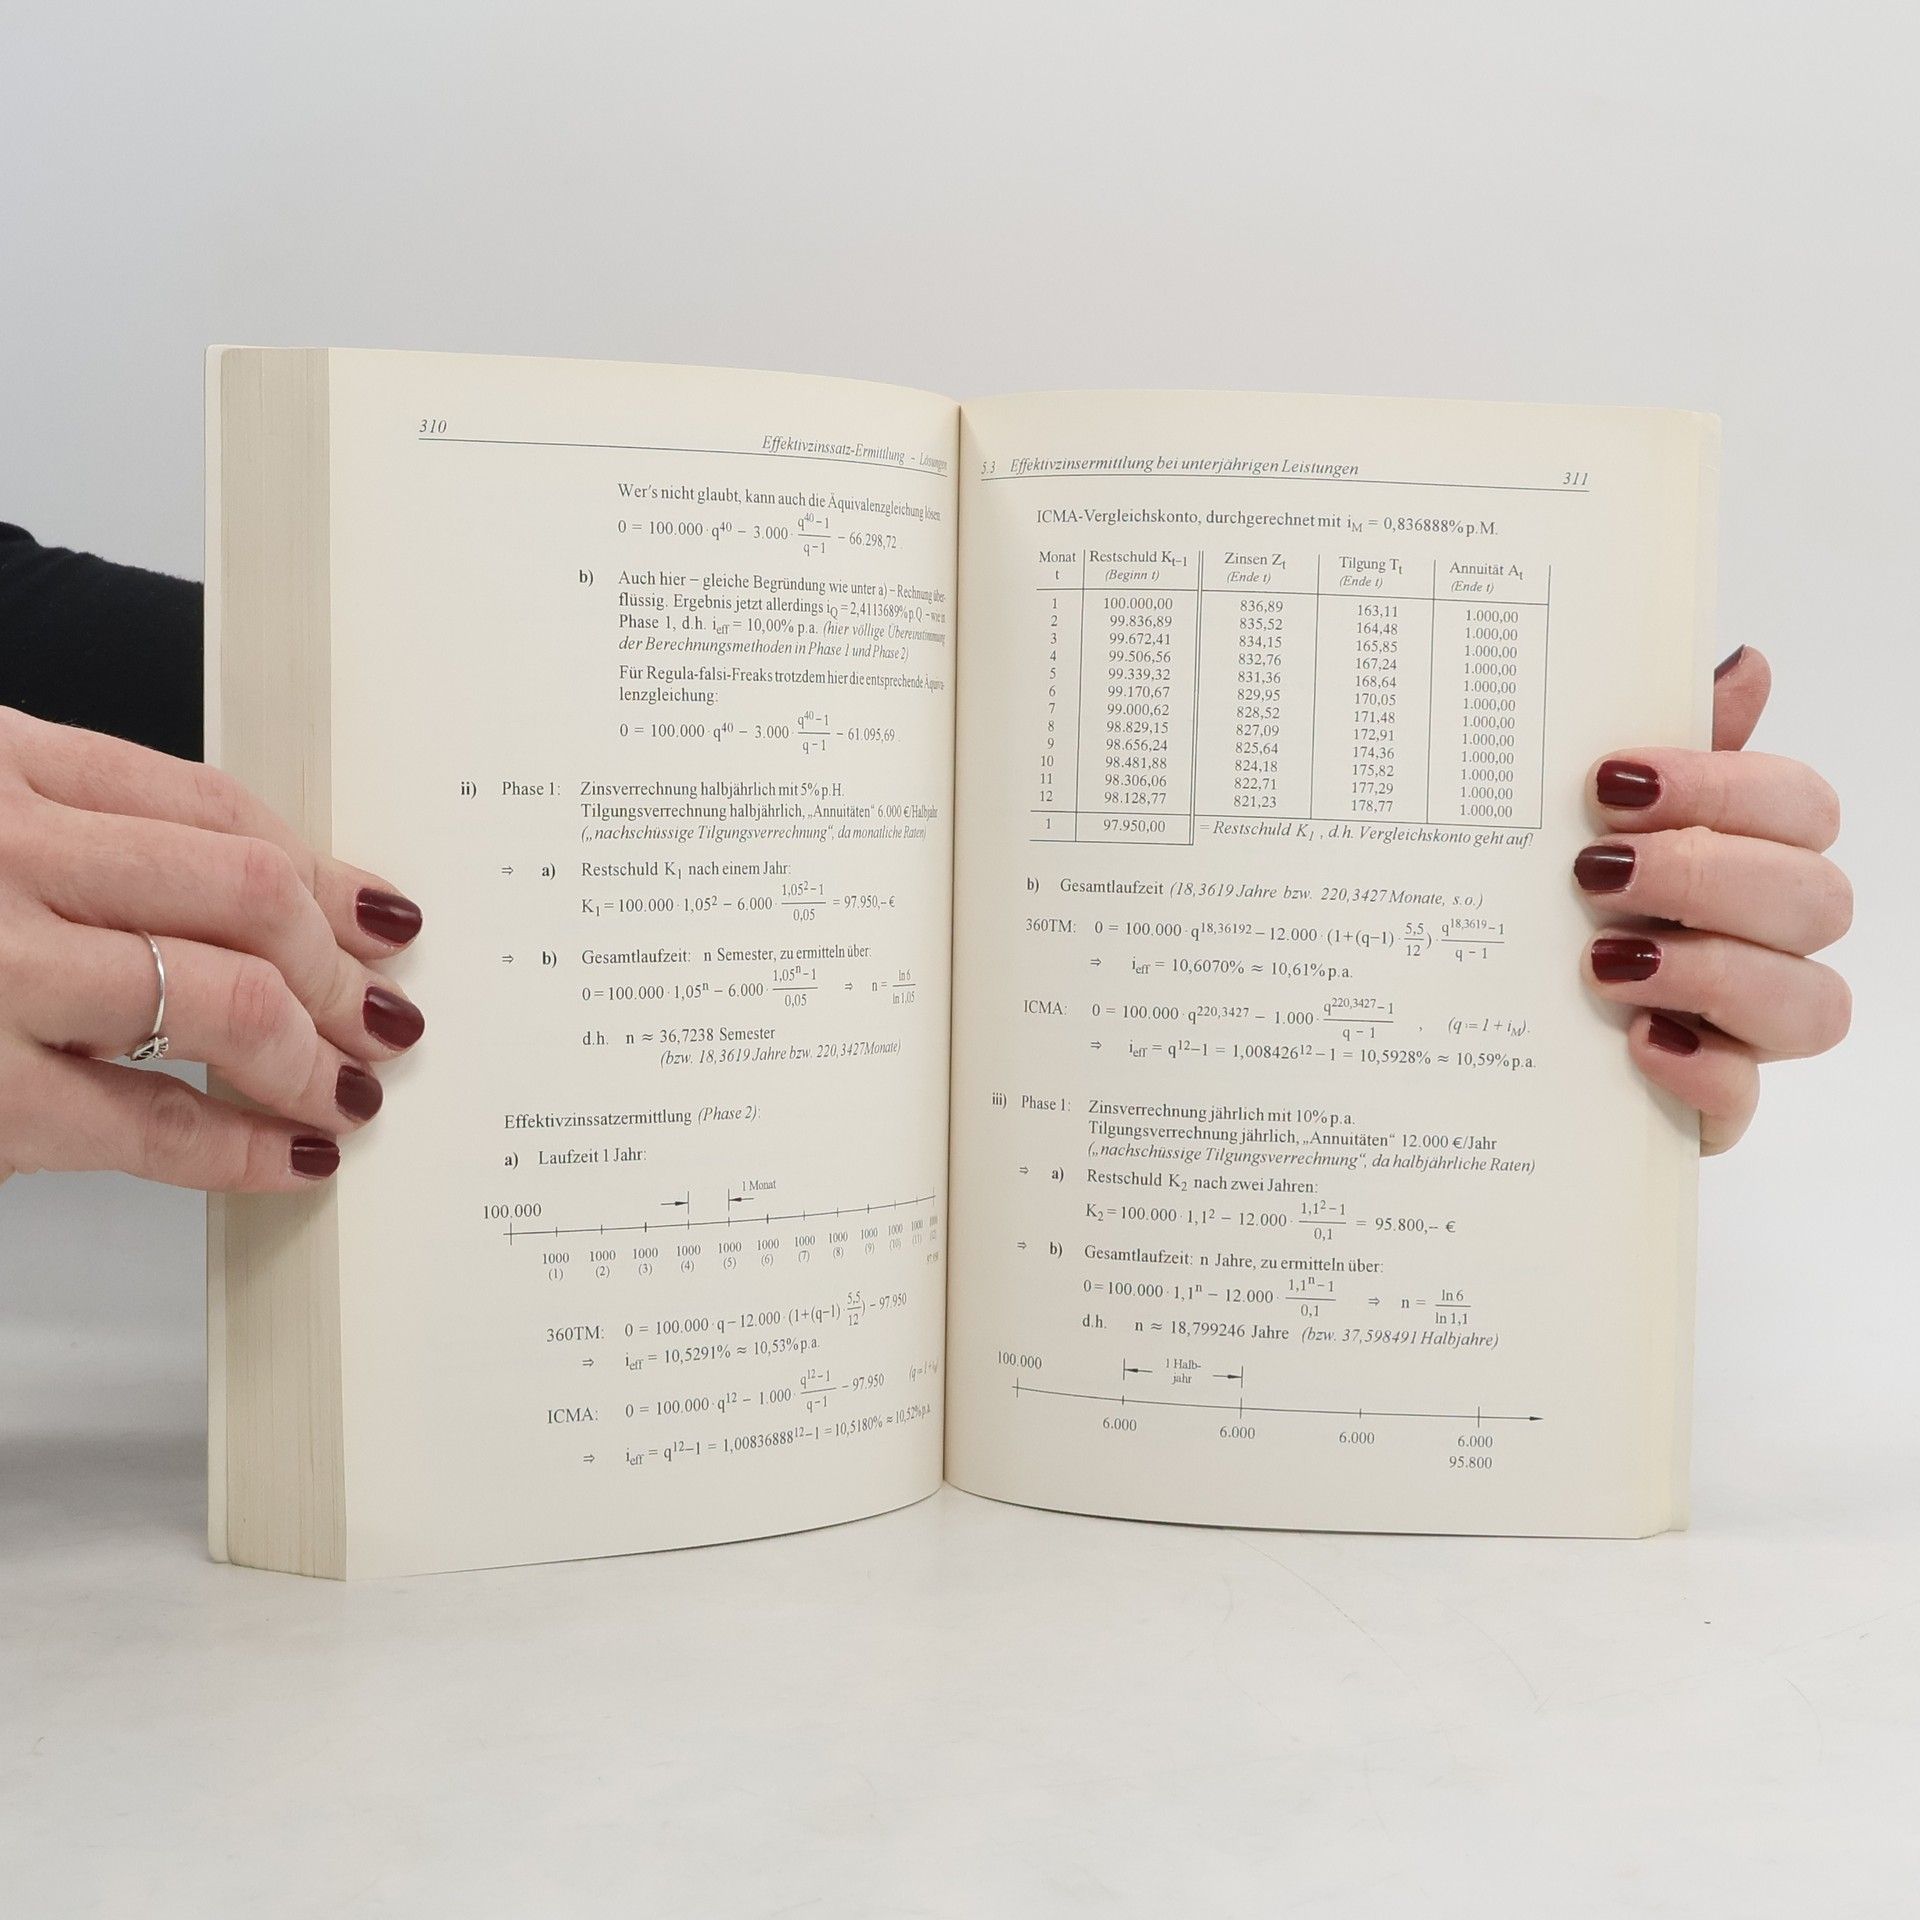 310
Effektivzinssatz-Ermittlung - Lösungen
Wer's nicht glaubt, kann auch die Äquivalenzgleichung lösen
0 = 100.000 · q⁴⁰ − 3.000 · (q⁴⁰−1)/(q−1) − 66.298,72 .
b) Auch hier – gleiche Begründung wie unter a) – Rechnung über-
flüssig. Ergebnis jetzt allerdings i_Q = 2,4113689% p.Q. – wie in
Phase 1, d.h. i_eff = 10,00% p.a. (hier völlige Übereinstimmung
der Berechnungsmethoden in Phase 1 und Phase 2)
Für Regula-falsi-Freaks trotzdem hier die entsprechende Äquiva-
lenzgleichung:
0 = 100.000 · q⁴⁰ − 3.000 · (q⁴⁰−1)/(q−1) − 61.095,69 .
ii) Phase 1: Zinsverrechnung halbjährlich mit 5% p.H.
Tilgungsverrechnung halbjährlich, „Annuitäten“ 6.000 €/Halbjahr
(„nachschüssige Tilgungsverrechnung“, da monatliche Raten)
⇒ a) Restschuld K₁ nach einem Jahr:
K₁ = 100.000 · 1,05² − 6.000 · (1,05²−1)/0,05 = 97.950,– €
⇒ b) Gesamtlaufzeit: n Semester, zu ermitteln über:
0 = 100.000 · 1,05ⁿ − 6.000 · (1,05ⁿ−1)/0,05 ⇒ n = ln 6/ln 1,05
d.h. n ≈ 36,7238 Semester
(bzw. 18,3619 Jahre bzw. 220,3427 Monate)
Effektivzinssatzermittlung (Phase 2):
a) Laufzeit 1 Jahr:
1 Monat
100.000
1000 1000 1000 1000 1000 1000 1000 1000 1000 1000 1000
(1) (2) (3) (4) (5) (6) (7) (8) (9) (10) (11)
360TM: 0 = 100.000 · q − 12.000 · (1+(q−1) · 5,5/12) − 97.950
⇒ i_eff = 10,5291% ≈ 10,53% p.a.
ICMA: 0 = 100.000 · q¹² − 1.000 · (q¹²−1)/(q−1) − 97.950
⇒ i_eff = q¹²−1 = 1,00836888¹²−1 = 10,5180% ≈ 10,52% p.a.
5.3 Effektivzinsermittlung bei unterjährigen Leistungen 311
ICMA-Vergleichskonto, durchgerechnet mit i_M = 0,836888% p.M.
Monat Restschuld K_t−1 Zinsen Z_t Tilgung T_t Annuität A_t
t (Beginn t) (Ende t) (Ende t) (Ende t)
1 100.000,00 836,89 163,11 1.000,00
2 99.836,89 835,52 164,48 1.000,00
3 99.672,41 834,15 165,85 1.000,00
4 99.506,56 832,76 167,24 1.000,00
5 99.339,32 831,36 168,64 1.000,00
6 99.170,67 829,95 170,05 1.000,00
7 99.000,62 828,52 171,48 1.000,00
8 98.829,15 827,09 172,91 1.000,00
9 98.656,24 825,64 174,36 1.000,00
10 98.481,88 824,18 175,82 1.000,00
11 98.306,06 822,71 177,29 1.000,00
12 98.128,77 821,23 178,77 1.000,00
1 97.950,00 = Restschuld K₁ , d.h. Vergleichskonto geht auf!
b) Gesamtlaufzeit (18,3619 Jahre bzw. 220,3427 Monate, s.o.)
360TM: 0 = 100.000 · q¹⁸,³⁶¹⁹² − 12.000 · (1+(q−1) · 5,5/12) · (q¹⁸,³⁶¹⁹−1)/(q − 1)
⇒ i_eff = 10,6070% ≈ 10,61% p.a.
ICMA: 0 = 100.000 · q²²⁰,³⁴²⁷ − 1.000 · (q²²⁰,³⁴²⁷−1)/(q − 1) , (q := 1 + i_M).
⇒ i_eff = q¹²−1 = 1,008426¹²−1 = 10,5928% ≈ 10,59% p.a.
iii) Phase 1: Zinsverrechnung jährlich mit 10% p.a.
Tilgungsverrechnung jährlich, „Annuitäten“ 12.000 €/Jahr
(„nachschüssige Tilgungsverrechnung“, da halbjährliche Raten)
⇒ a) Restschuld K₂ nach zwei Jahren:
K₂ = 100.000 · 1,1² − 12.000 · (1,1²−1)/0,1 = 95.800,-- €
⇒ b) Gesamtlaufzeit: n Jahre, zu ermitteln über:
0 = 100.000 · 1,1ⁿ − 12.000 · (1,1ⁿ−1)/0,1 ⇒ n = ln 6/ln 1,1
d.h. n ≈ 18,799246 Jahre (bzw. 37,598491 Halbjahre)
100.000
1 Halb-
jahr
6.000 6.000 6.000 6.000
95.800